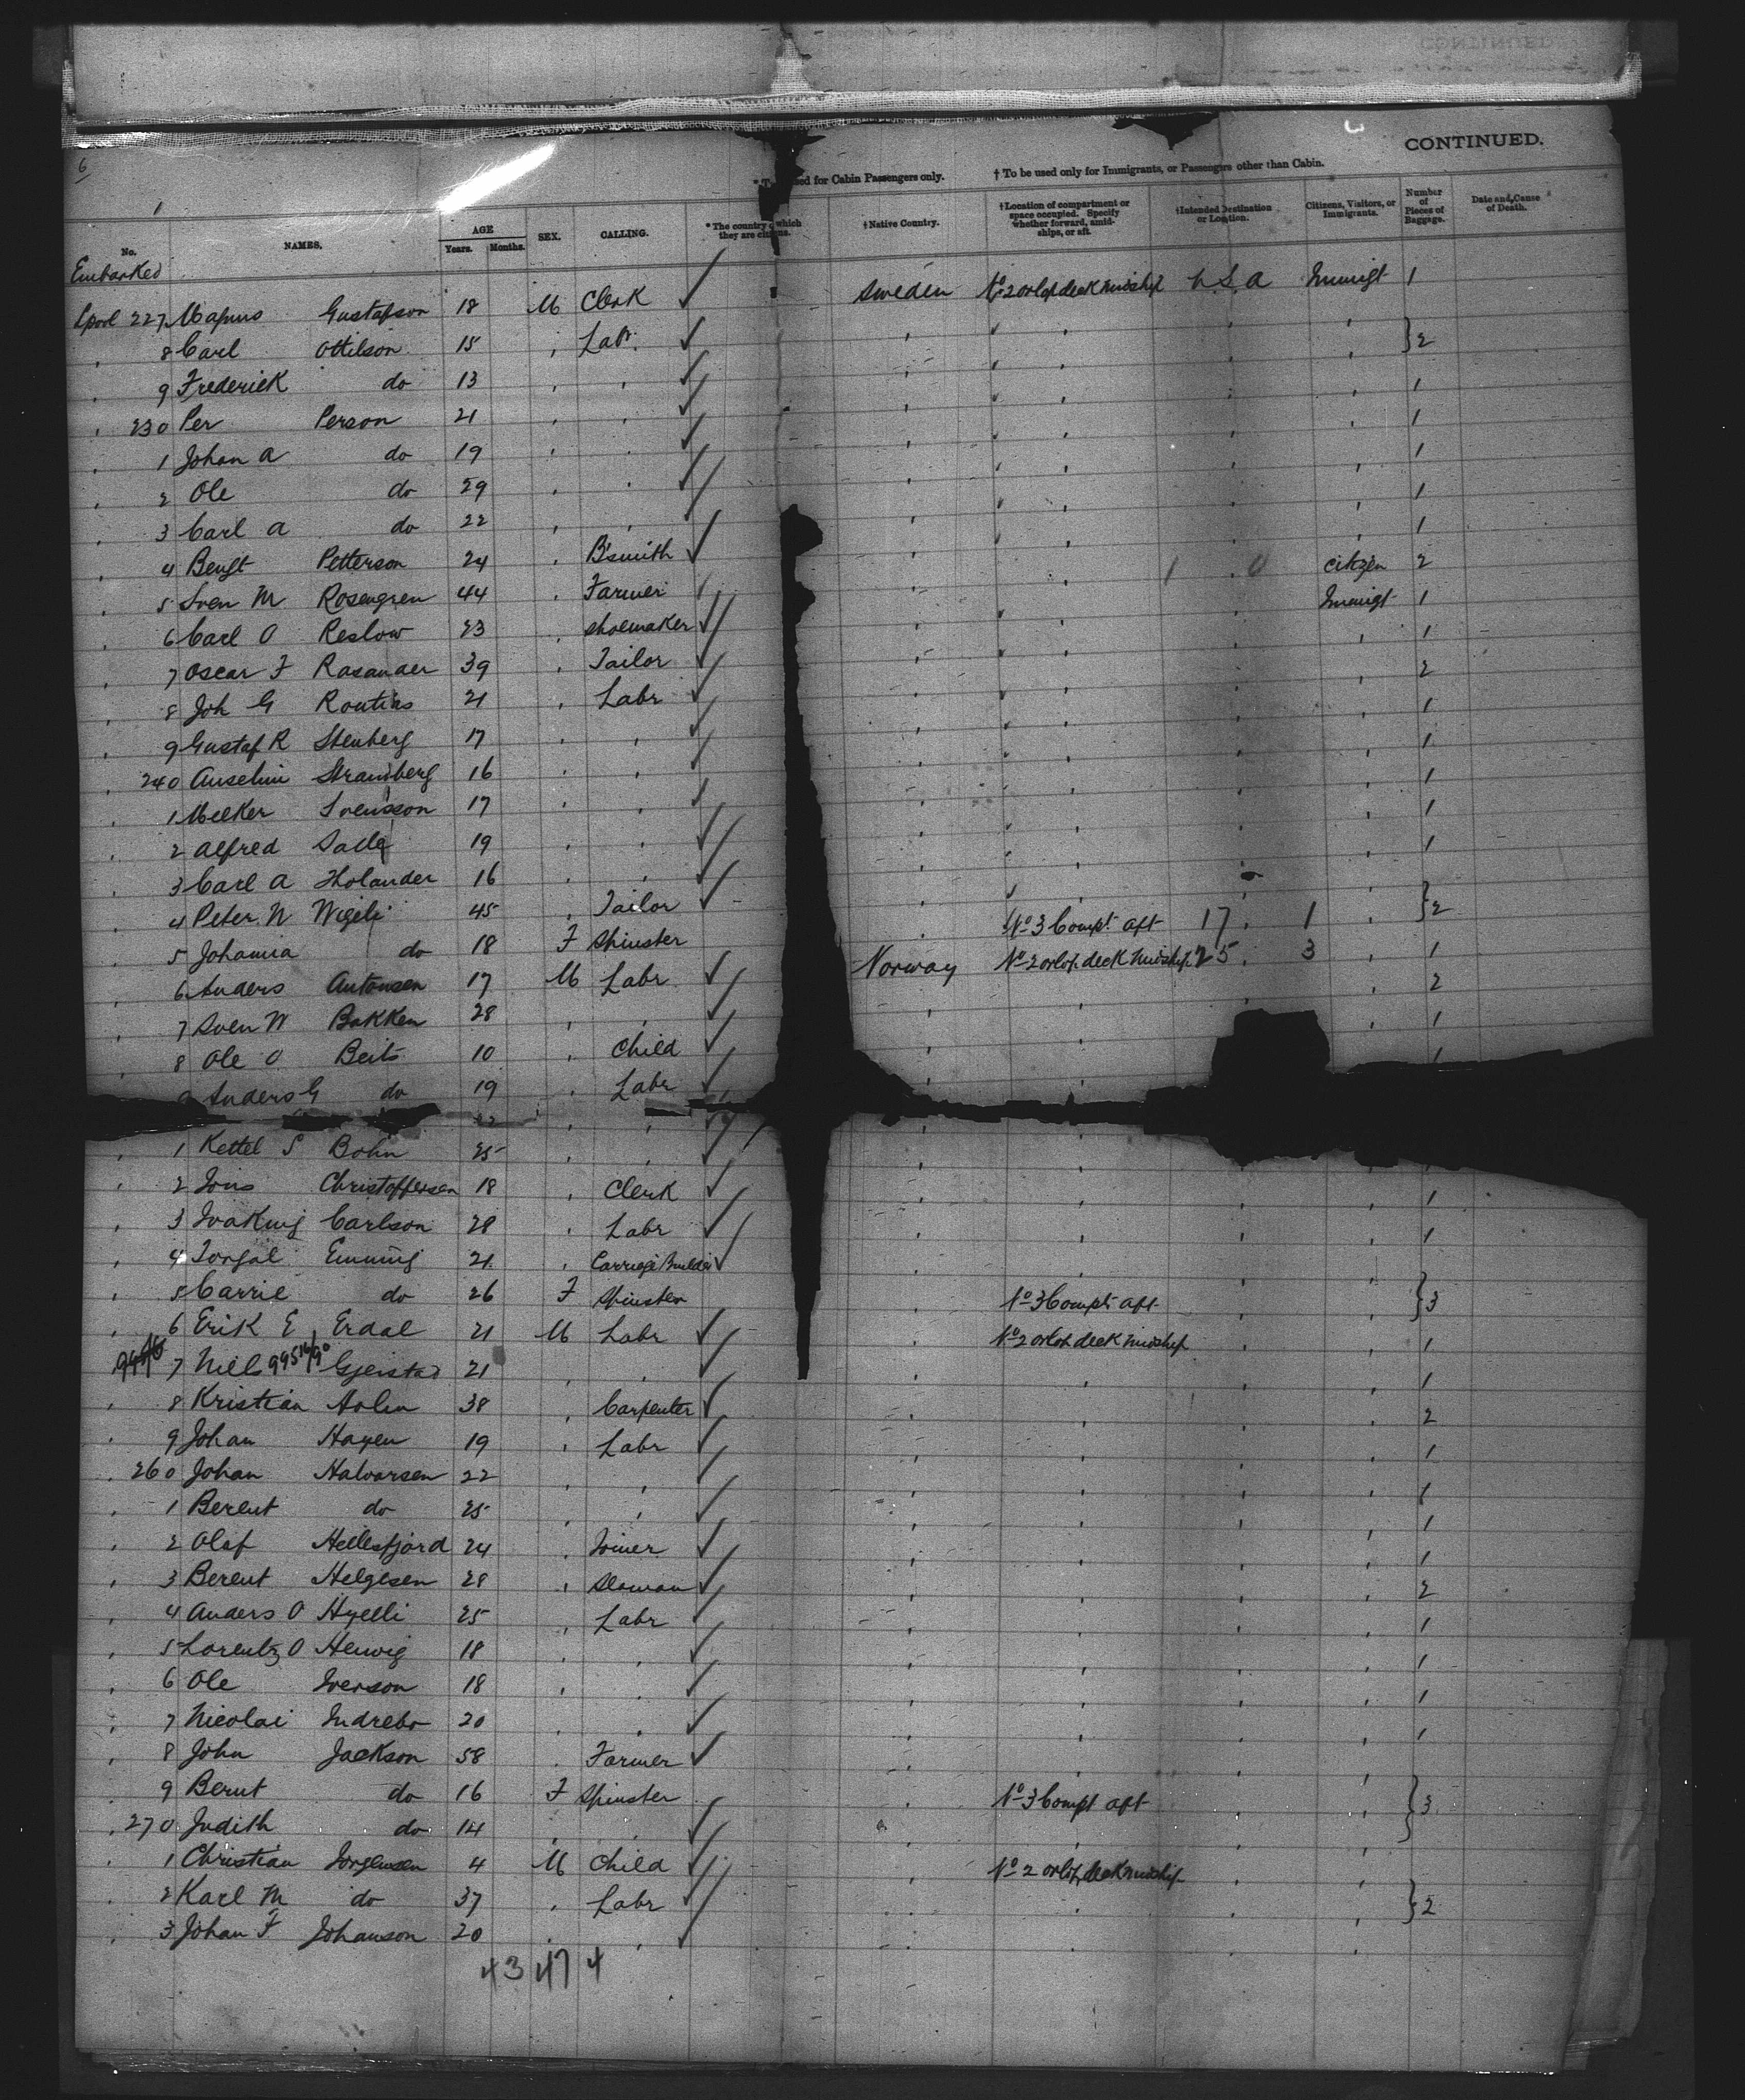 CONTINUED.
6
* T sed for Cabin Passengers only. † To be used only for Immigrants, or Passengers other than Cabin.
No. NAMES. AGE Years. Months. SEX. CALLING. * The country which they are citizens. † Native Country. † Location of compartment or space occupied. Specify whether forward, amidships, or aft. † Intended Destination or Location. Citizens, Visitors, or Immigrants. Number of Pieces of Baggage. Date and Cause of Death.
Embarked
Lpool 227 Magnus Gustafson 18 M Clerk ✓ Sweden No 2 orlop deck midship U S A Immigt 1
8 Carl Ottilson 15 " Labr ✓ " " " " " } 2
9 Frederick do 13 " " ✓ " " " " "
230 Per Person 21 " " ✓ " " " " " 1
1 Johan A do 19 " " ✓ " " " " " 1
2 Ole do 29 " " ✓ " " " " " 1
3 Carl A do 22 " " ✓ " " " " " 1
4 Bengt Petterson 24 " B'smith ✓ " " " " " 1
5 Sven M Rosengren 44 " Farmer " " " citizen 2
6 Carl O Reslow 23 " Shoemaker ✓ " " " Immigt 1
7 Oscar F Rasander 39 " Tailor ✓ " " " " 1
8 Joh G 21 " Labr ✓ " " " " 2
9 Gustaf R Stenberg 17 " " ✓ " " " " 1
240 Anselm Strandberg 16 " " ✓ " " " " 1
1 Svensson 17 " " ✓ " " " " 1
2 Alfred 19 " " ✓ " " " " 1
3 Carl A 16 " " ✓ " " " " 1
4 Peter N 45 " Tailor ✓ " " " " } 2
5 Johanna do 18 F Spinster " No 3 Compt aft 17 1 "
6 Anders Antonsen 17 M Labr ✓ Norway No 2 orlop deck midship 25 3 " 1
7 Sven W Bakken 28 " " ✓ " " " " 2
8 Ole O Beito 10 " Child ✓ " " " 1
9 Anders G do 19 " Labr ✓ " " 1
1 Kettel S Bohn 25 " " ✓ " "
2 Christoffersen 18 " Clerk ✓ " " " "
3 Carlson 28 " Labr ✓ " " " " 1
4 21 " Carriage Builder ✓ " " " " 1
5 Carrie do 26 F Spinster " No 3 Compt aft " " } 3
6 Erik E Erdal 21 M Labr ✓ " No 2 orlop deck midship " " 1
7 Niels Gjerstad 21 " " ✓ " " " " 1
8 Kristian Holm 38 " Carpenter ✓ " " " " 2
9 Johan Hagen 19 " Labr ✓ " " " " 1
260 Johan Halvorsen 22 " " ✓ " " " " 1
1 Berent do 25 " " ✓ " " " " 1
2 Olaf Hellesfjord 24 " Joiner ✓ " " " " 1
3 Berent Helgesen 28 " Seaman ✓ " " " " 2
4 Anders O Hyelli 25 " Labr ✓ " " " " 1
5 Lorentz O 18 " " ✓ " " " " 1
6 Ole Iverson 18 " " ✓ " " " " 1
7 Nicolai Indrebo 20 " " ✓ " " " " 1
8 John Jackson 58 " Farmer ✓ " " " "
9 Berut do 16 F Spinster " No 3 Compt aft " " } 3
270 Judith do 14 " " ✓ " " " "
1 Christian Jorgensen 4 M Child ✓ " No 2 orlop deck midship " "
2 Karl M do 37 " Labr ✓ " " " " } 2
3 Johan F Johanson 20 " " ✓ " " " "
43 47 4